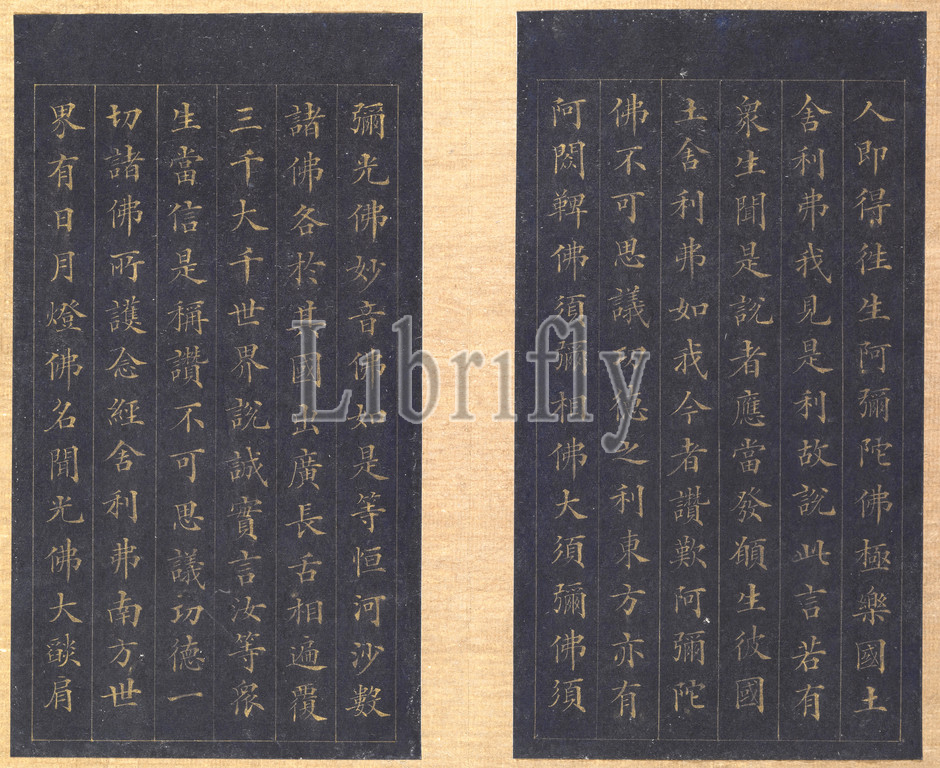 人即得往生阿彌陀佛極樂國土
舍利弗我見是利故說此言若有
衆生聞是說者應當發願生彼國
土舍利弗如我今者讚歎阿彌陀
佛不可思議功德之利東方亦有
阿閦鞞佛須彌相佛大須彌佛須
彌光佛妙音佛如是等恒河沙數
諸佛各於其國出廣長舌相遍覆
三千大千世界說誠實言汝等衆
生當信是稱讚不可思議功德一
切諸佛所護念經舍利弗南方世
界有日月燈佛名聞光佛大燄肩
Librifly